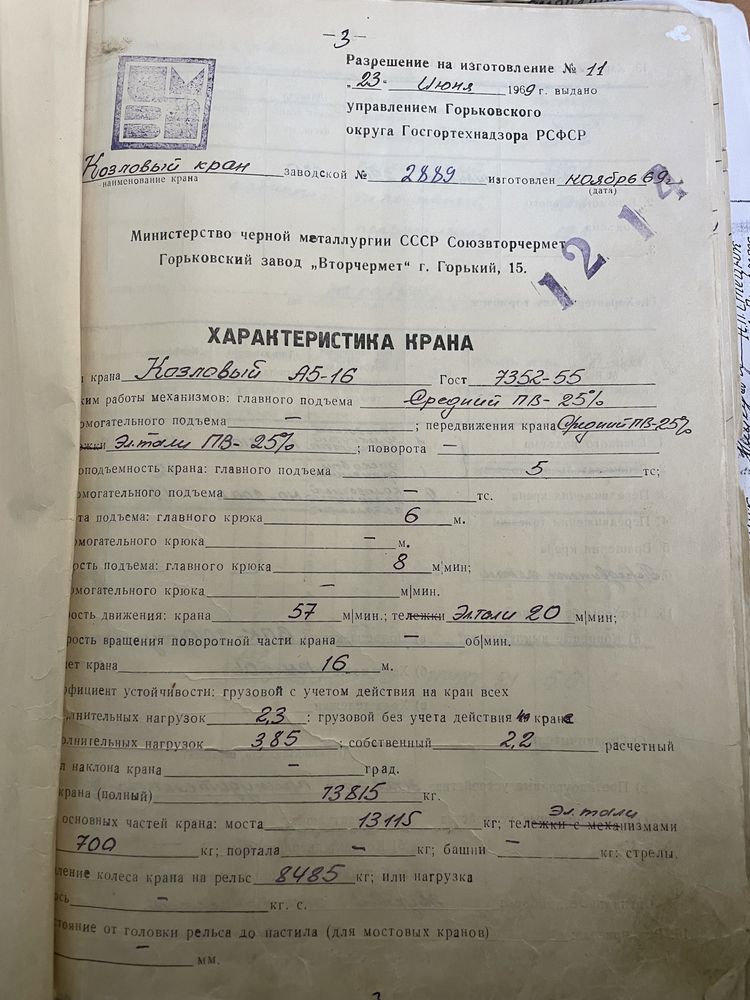 -3-
Разрешение на изготовление № 11
„23" Июня 1969 г. выдано
управлением Горьковского
округа Госгортехнадзора РСФСР
Козловый кран заводской № 2889 изготовлен ноябрь 69г
наименование крана (дата)
1 2 1 2
Министерство черной металлургии СССР Союзвторчермет
Горьковский завод „Вторчермет" г. Горький, 15.
ХАРАКТЕРИСТИКА КРАНА
крана Козловый А5-16 Гост 7352-55
ким работы механизмов: главного подъема Средний ПВ-25%
омогательного подъема — ; передвижения крана Средний ПВ-25%
жки Эл.тали ПВ-25% ; поворота —
оподъемность крана: главного подъема 5 тс;
омогательного подъема — тс.
та подъема: главного крюка 6 м.
омогательного крюка — м.
ость подъема: главного крюка 8 м|мин;
омогательного крюка — м|мин.
ость движения: крана 57 м|мин.; тележки Эл.тали 20 м|мин;
рость вращения поворотной части крана — об|мин.
ет крана 16 м.
фициент устойчивости: грузовой с учетом действия на кран всех
лнительных нагрузок 2,3 : грузовой без учета действия на кран
олнительных нагрузок 3,85 ; собственный 2,2 расчетный
л наклона крана — град.
крана (полный) 13815 кг.
Эл.тали
основных частей крана: моста 13115 кг; тележки с механизмами
700 кг; портала — кг; башни — кг: стрелы.
ление колеса крана на рельс 8485 кг; или нагрузка
ось — кг. с.
тояние от головки рельса до настила (для мостовых кранов)
— мм.